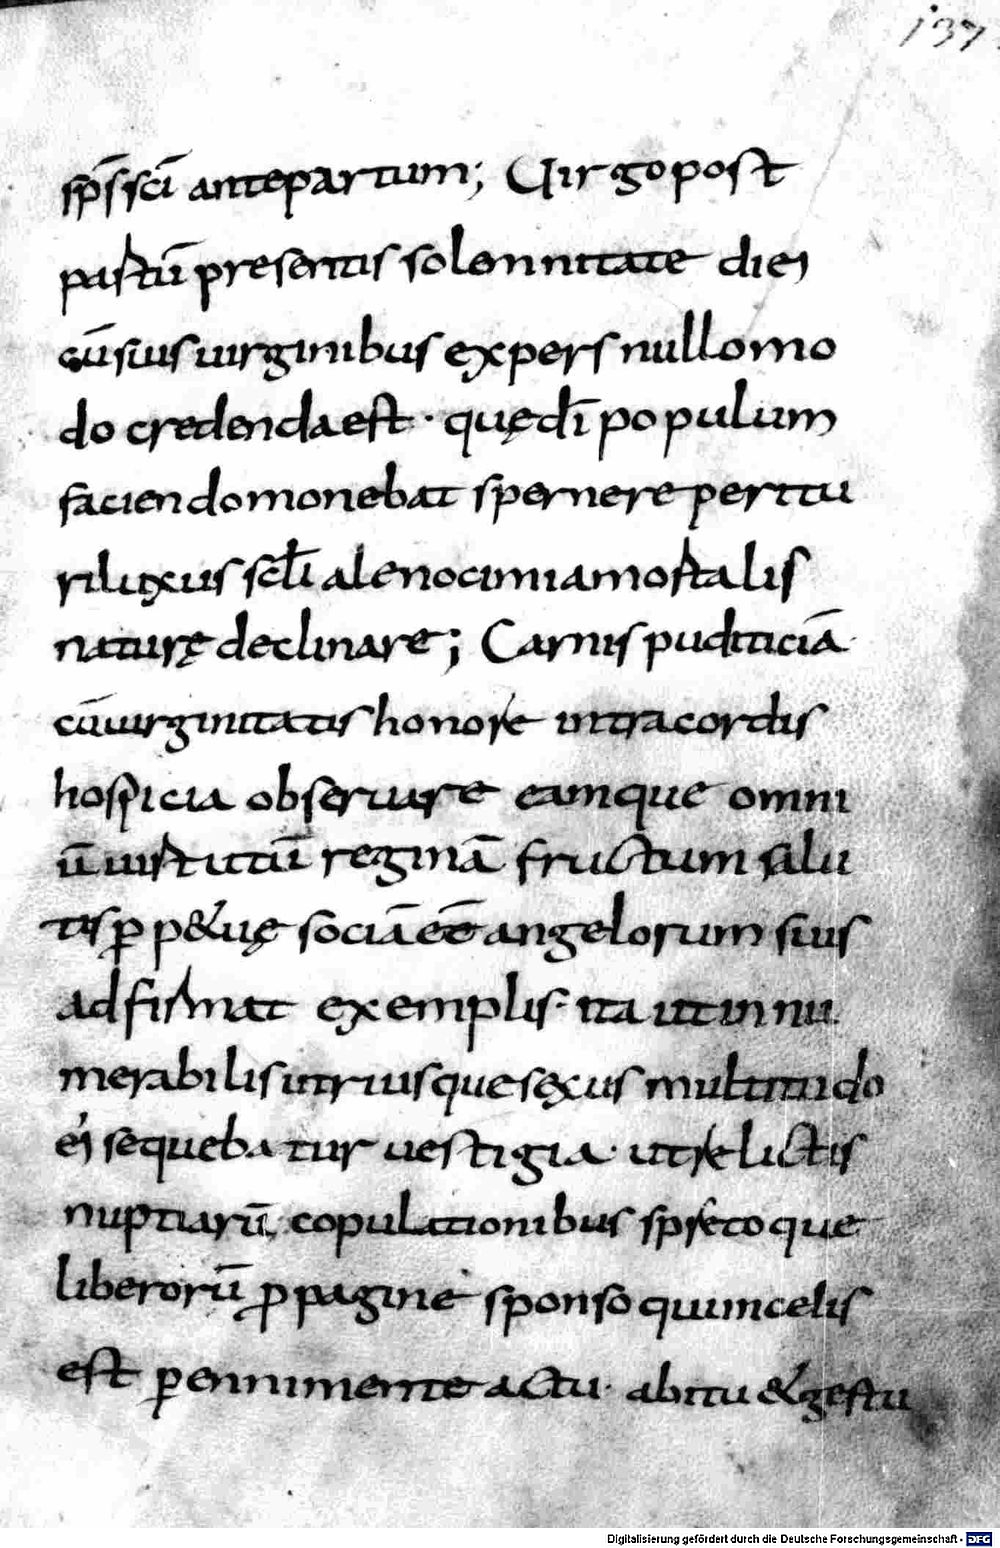 137
sp̄s sc̄i ante partum; Virgo post
partū presentis solemnitate diei
cū suis uirginibus expers nullomo
do credenda est · quę dī populum
faciendo monebat spernere peritu
ri luxus scl̄i a lenocinia mortalis
naturę declinare; Carnis pudiciciā
cū uirginitatis honore intra cordis
hospicia obseruare eamque omni
ū uirtutū reginā fructum salu
tis ꝓ p&uę sociā eē angelorum suis
adfirmat exemplis · ita ut innu
merabilis utriusque sexus multitudo
ei sequebatur uestigia · ut relictis
nuptiarū copulationibus spretoque
liberorū ꝓpagine sponso qui in celis
est ꝑ enimente actu · abitu & gestu
Digitalisierung gefördert durch die Deutsche Forschungsgemeinschaft - DFG